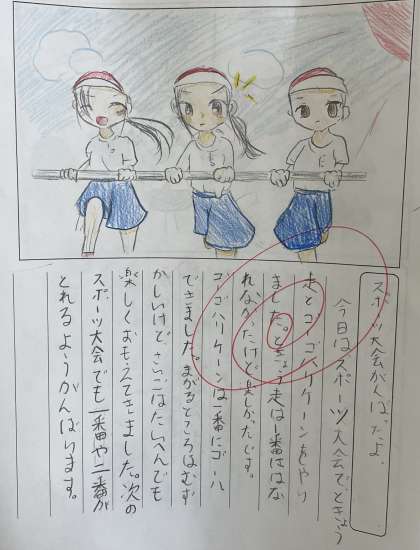 スポーツ大会がんばったよ
今日はスポーツ大会でときょう
走とゴーゴーハリケーンをやり
ました。ときょう走は一番はな
れなかったけど楽しかったです。
ゴーゴーハリケーンは一番にゴール
できました。まがるところはむず
かしいけど、さいごはたいへんでも
楽しくおもえてきました。次の
スポーツ大会でも一番や二番が
とれるようがんばります。